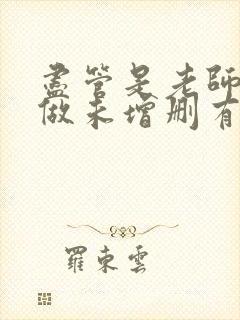 盡管是老師
做未增刪有
羅東雲